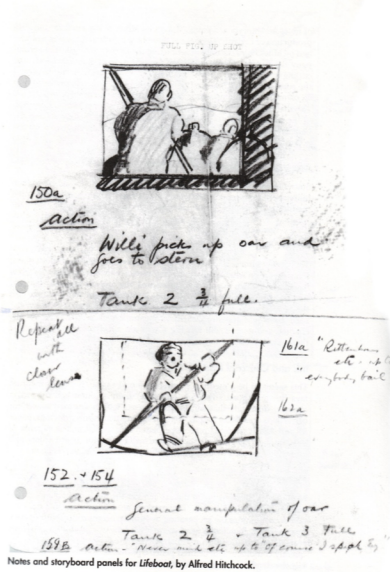 FULL FIG. OF SHOT
150a
Action
Willi picks up oar and
goes to stern
Tank 2 3/4 full.
Repeat all
with
closer
lens
161a "Rittenhaus
etc. up
"everybody bail
162a
152. + 154
Action
General manipulation of oar
Tank 2 3/4 + Tank 3 Full
159B Action - "Never mind etc up to "Of course I speak Eng"
Notes and storyboard panels for Lifeboat, by Alfred Hitchcock.